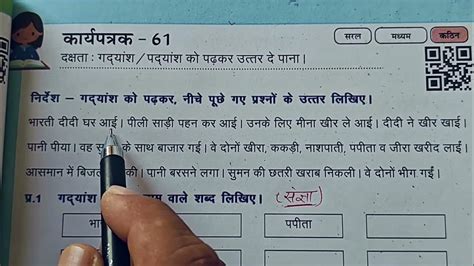 कार्यपत्रक - 61
सरल मध्यम कठिन
दक्षता : गद्यांश / पद्यांश को पढ़कर उत्तर दे पाना।
निर्देश – गद्यांश को पढ़कर, नीचे पूछे गए प्रश्नों के उत्तर लिखिए।
भारती दीदी घर आई। पीली साड़ी पहन कर आई। उनके लिए मीना खीर ले आई। दीदी ने खीर खाई।
पानी पीया। वह के साथ बाजार गई। वे दोनों खीरा, ककड़ी, नाशपाती, पपीता व जीरा खरीद लाईं।
आसमान में की। पानी बरसने लगा। सुमन की छतरी खराब निकली। वे दोनों भीग गईं।
प्र.1 गद्यांश वाले शब्द लिखिए। (संज्ञा)
पपीता